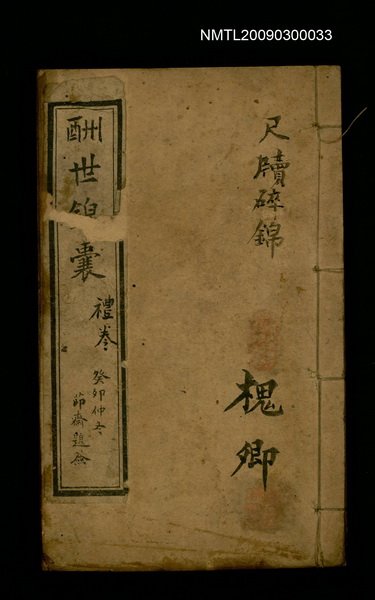 NMTL20090300033
尺牘碎錦
槐卿
酬世錦囊
禮卷
癸卯仲冬
節齋題簽